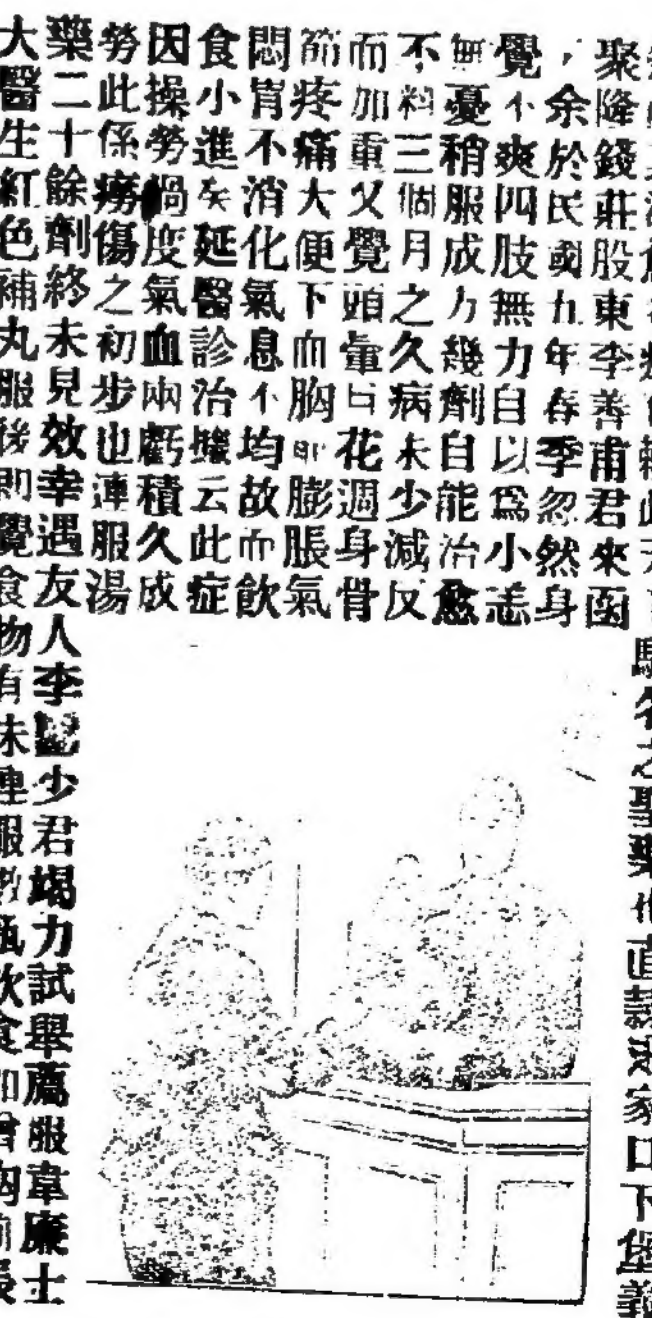 馳名之聖藥也直隸張家口下堡義
聚隆錢莊股東李善甫君來函
，余於民國九年春季忽然身
覺不爽四肢無力自以爲小恙
無憂稍服成方幾劑自能治愈
不料三個月之久病未少減反
而加重又覺頭暈目花週身骨
節疼痛大便下血胸中膨脹氣
悶胃不消化氣息不均故而飲
食小進矣延醫診治據云此症
因操勞過度氣血兩虧積久成
勞此係癆傷之初步也連服湯
藥二十餘劑終未見效幸遇友人李少君竭力試舉薦服韋廉士
大醫生紅色補丸服後即覺食物有味連服數瓶飲食如胸